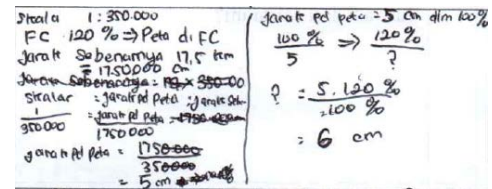 Skala 1 : 350.000
FC 120 % ⇒ Peta di FC
Jarak Sebenarnya 17,5 km
= 1750000 cm
Skalar = jarak pd Peta : jarak Seb.
1/350000 = jarak pd Peta / 1750000
jarak pd Peta = 1750000/350000
= 5 cm
jarak pd peta = 5 cm dlm 100%
100 %/5 ⇒ 120 %/?
? = 5 . 120 %/100 %
= 6 cm